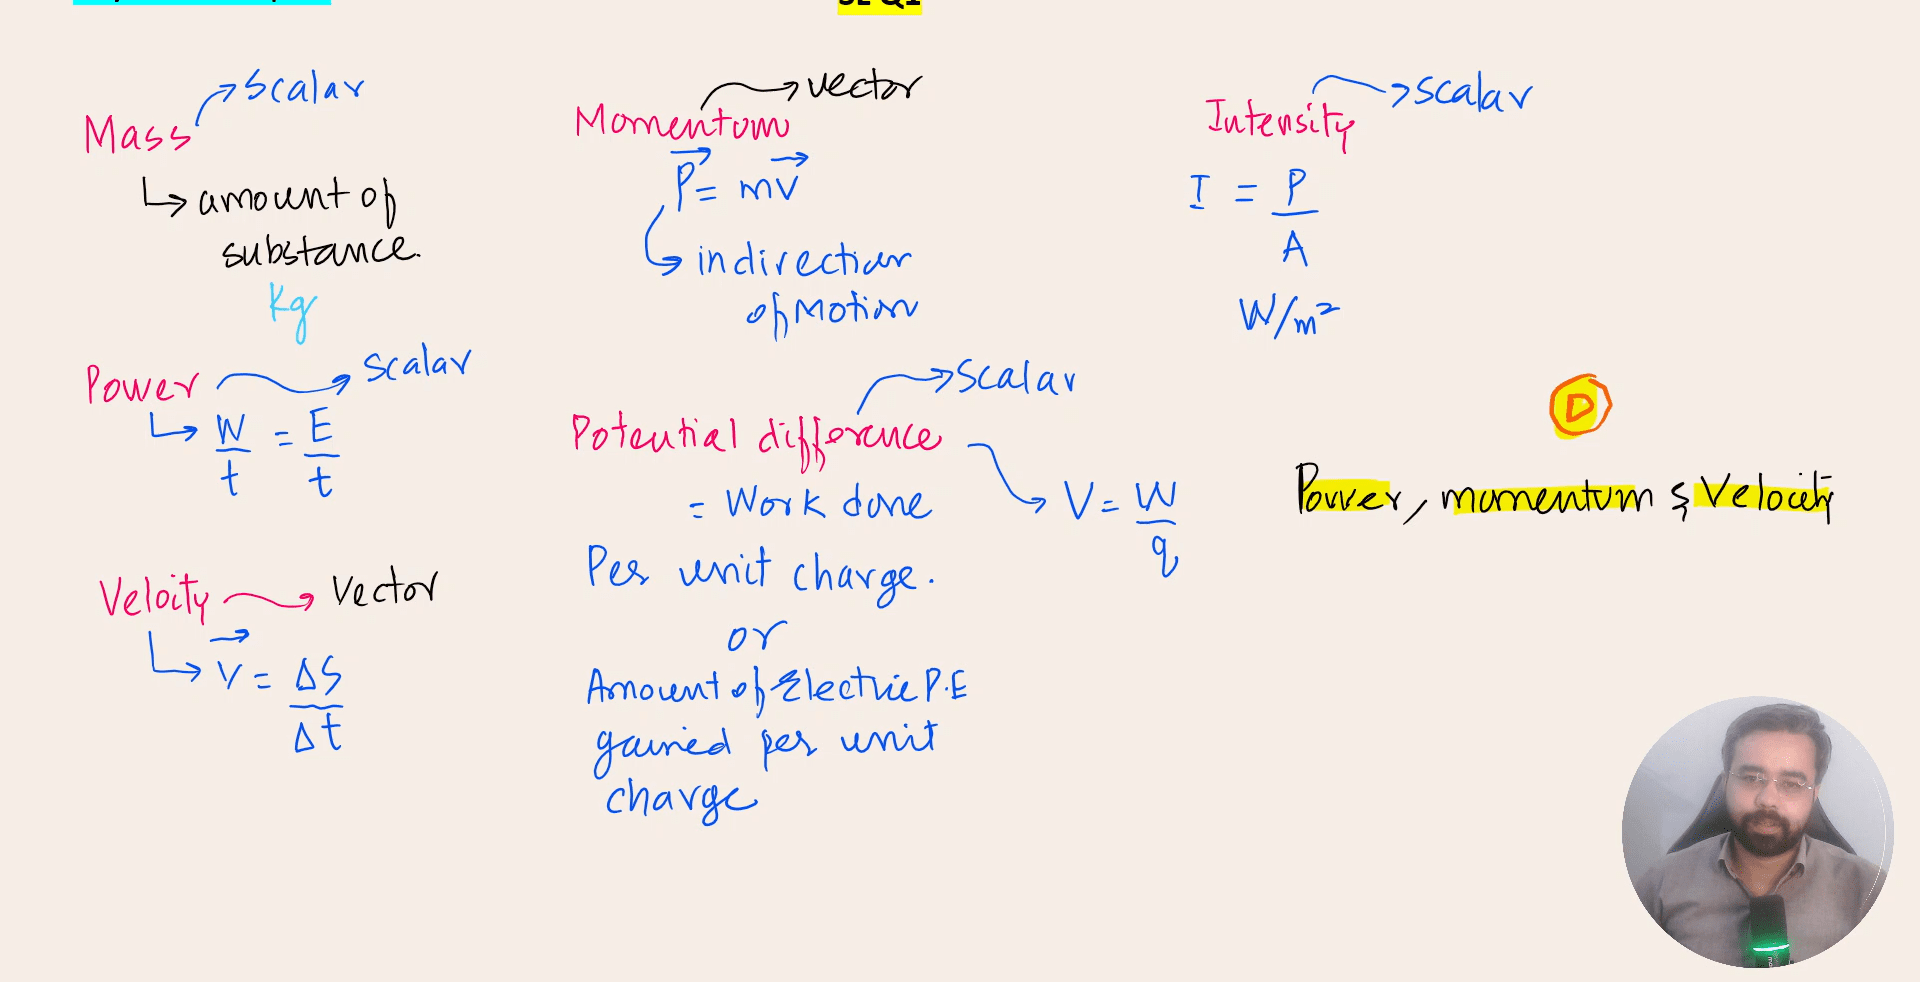 Mass → scalar
↳ amount of
substance.
kg
Power → scalar
↳ W/t = E/t
Veloity → vector
↳ v⃗ = ΔS/Δt
Momentum → vector
P⃗ = mv⃗
↳ in direction
of Motion
Potential difference → scalar
= Work done
Per unit charge.
→ V = W/q
or
Amount of Electric P.E
gained per unit
charge
Intensity → scalar
I = P/A
W/m²
D
Power, momentum & Velocity